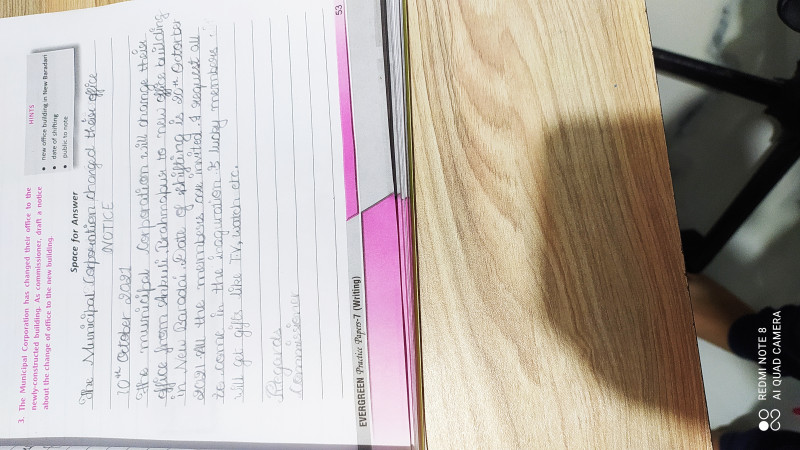 3. The Municipal Corporation has changed their office to the
newly-constructed building. As commissioner, draft a notice
about the change of office to the new building.
HINTS
• new office building in New Baradari
• date of shifting
• public to note
Space for Answer
The Municipal Corporation changed their office
NOTICE
10th October 2021
The municipal Corporation will change their
office from Brahmapur to new office building
in New Baradari. Date of shifting is 20th October
2021. All the members are invited. I request all
to come in the inaguration. 5 lucky members
will get gifts like T.V, watch etc.
Regards
Commissioner
EVERGREEN Practice Papers-7 (Writing)
53
REDMI NOTE 8
AI QUAD CAMERA